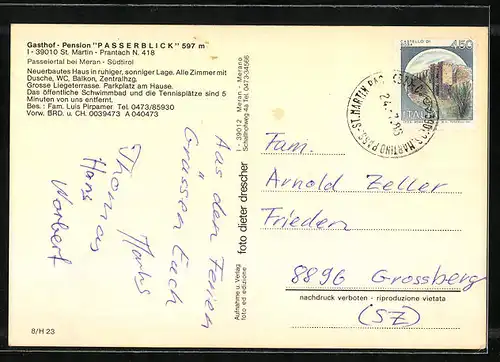 Gasthof - Pension "PASSERBLICK" 597 m
I - 39010 St. Martin - Prantach N. 418
Passeiertal bei Meran - Südtirol
Neuerbautes Haus in ruhiger, sonniger Lage. Alle Zimmer mit
Dusche, WC, Balkon, Zentralhzg.
Grosse Liegeterrasse. Parkplatz am Hause.
Das öffentliche Schwimmbad und die Tennisplätze sind 5
Minuten von uns entfernt.
Bes.: Fam. Luis Pirpamer Tel. 0473/85930
Vorw. BRD. u. CH. 0039473 A 040473
Aus den Ferien
Grüssen Euch
Thomas
Hans
Norbert
8/H 23
Aufnahme u. Verlag
foto ed edizione
foto dieter drescher
I - 39012 Meran - Merano
Schallhofweg 4a Tel. 0473-34566
CASTELLO DI
450
ITALIA
ST. MARTIN PASS.
S. MARTINO PASS.
Fam.
Arnold Zeller
Frieden
8896 Grossberg
nachdruck verboten - riproduzione vietata
(SZ)